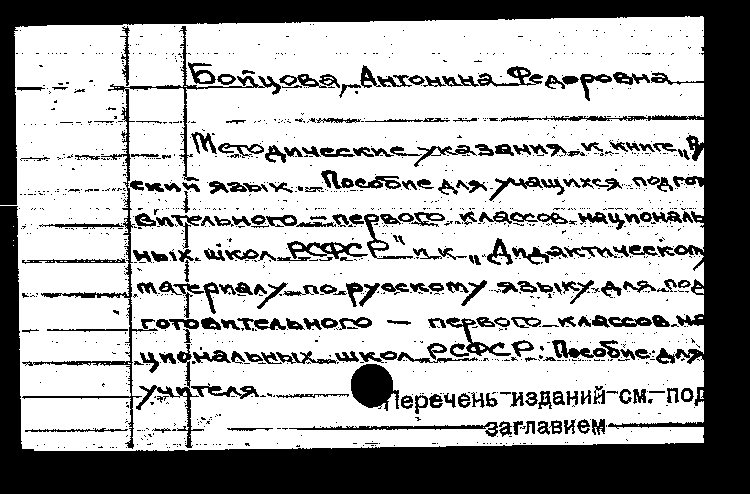 Бойцова, Антонина Федоровна
Методические указания к книге „Ру
ский язык. Пособие для учащихся подгот
вительного – первого классов националь
ных школ РСФСР" и к „Дидактическому
материалу по русскому языку для под
готовительного – первого классов на
циональных школ РСФСР: Пособие для
учителя
Перечень изданий см. под
заглавием